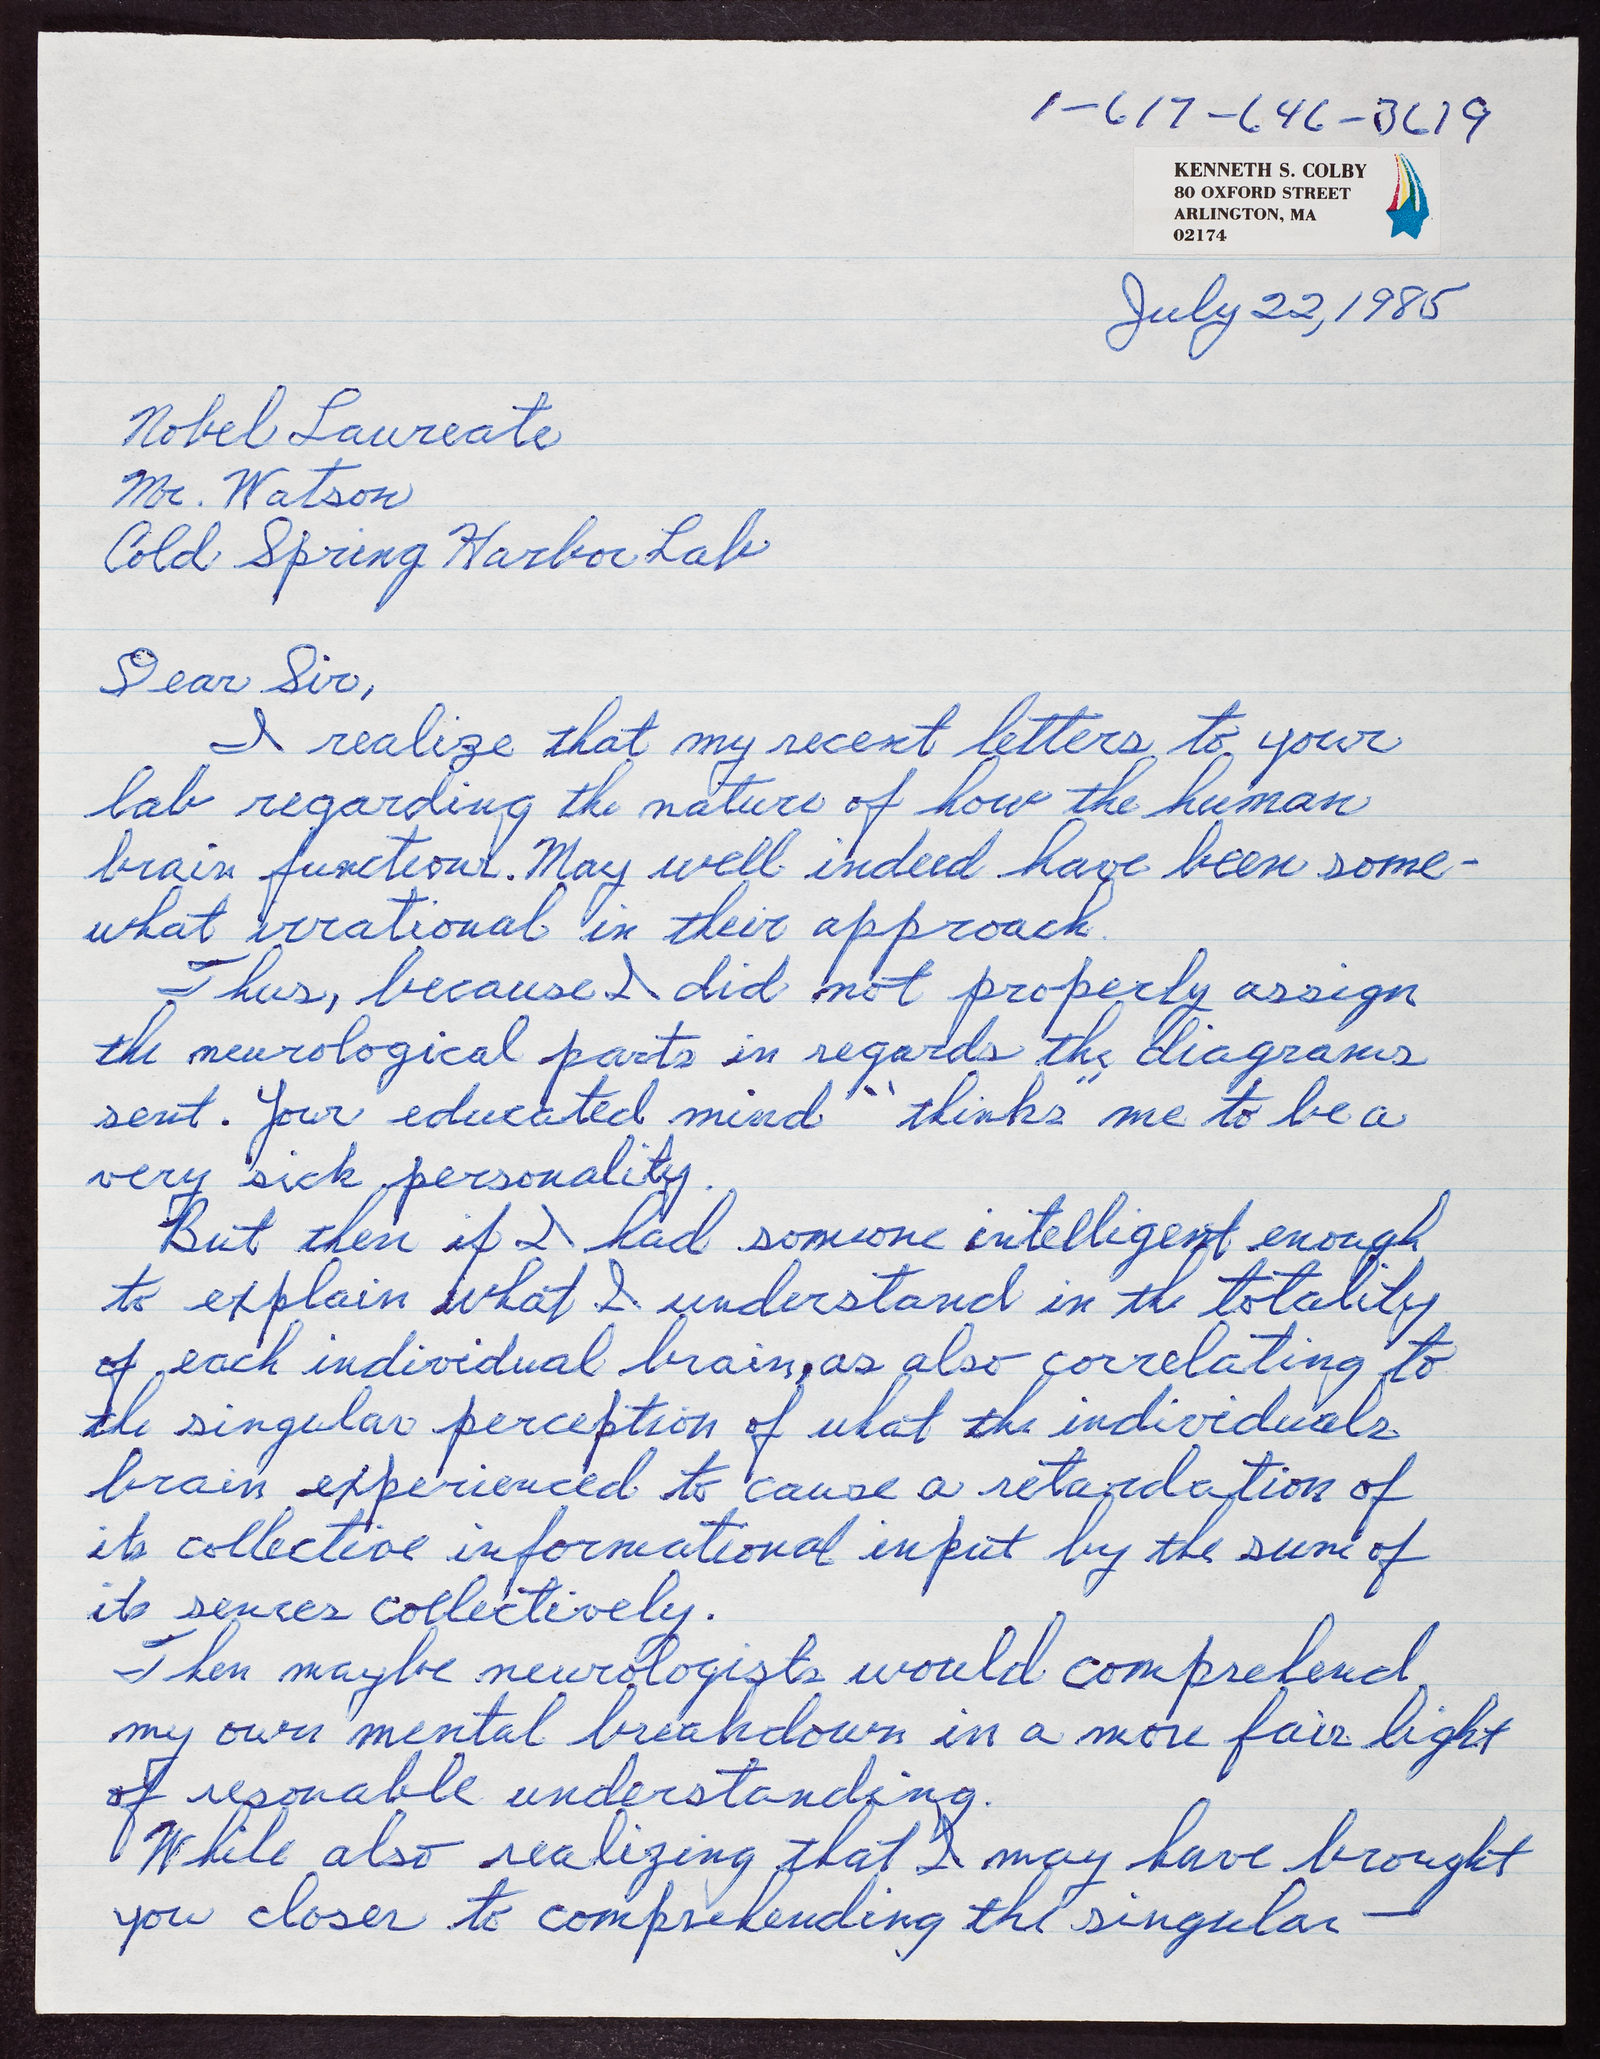 1-617-646-3619
KENNETH S. COLBY
80 OXFORD STREET
ARLINGTON, MA
02174
July 22, 1985
Nobel Laureate
Mr. Watson
Cold Spring Harbor Lab
Dear Sir,
I realize that my recent letters to your
lab regarding the nature of how the human
brain functions. May well indeed have been some-
what irrational in their approach.
Thus, because I did not properly assign
the neurological parts in regards the diagrams
sent. Your educated mind "thinks" me to be a
very sick personality.
But then if I had someone intelligent enough
to explain what I understand in the totality
of each individual brain, as also correlating to
the singular perception of what the individuals
brain experienced to cause a retardation of
its collective informational input by the sum of
its senses collectively.
Then maybe neurologists would comprehend
my own mental breakdown in a more fair light
of resonable understanding.
While also realizing that I may have brought
you closer to comprehending the singular —